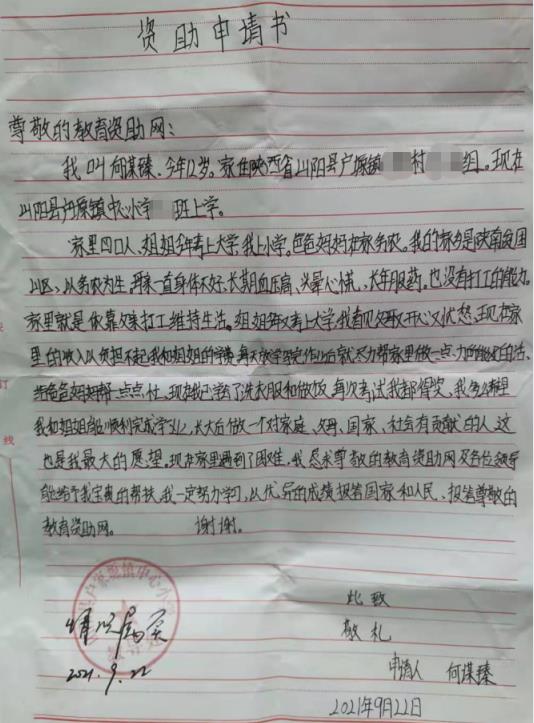 资助申请书
尊敬的教育资助网：
我叫何谋臻、今年12岁。家住陕西省山阳县户塬镇 村 组。现在
山阳县户塬镇中心小学 班上学。
家里四口人、姐姐今年考上大学，我上小学。爸爸妈妈在家务农。我的家乡是陕南贫困
山区、以务农为生。 一直身体不好、长期血压高、头晕心慌、长年服药。也没有打工的能力。
家里就是依靠父亲打工维持生活。姐姐今年考上大学我看见父母又开心又忧愁、现在家
里的收入以负担不起我和姐姐的学费，每天放学写完作业后就尽力帮家里做一点力所能及的活、
给爸爸妈妈 一点点忙、现在我已学会了洗衣服和做饭，每次考试我都得奖，我多么希望
我和姐姐能顺利完成学业、长大后做一个对家庭、父母、国家、社会有贡献的人。这
也是我最大的愿望。现在家里遇到了困难、我恳求尊敬的教育资助网及各位领导
能给予我宝贵的帮扶、我一定努力学习，以优异的成绩报答国家和人民、报答尊敬的
教育资助网。 谢谢。
情况属实
2021.9.22
此致
敬礼
申请人 何谋臻
2021年9月22日
订
线